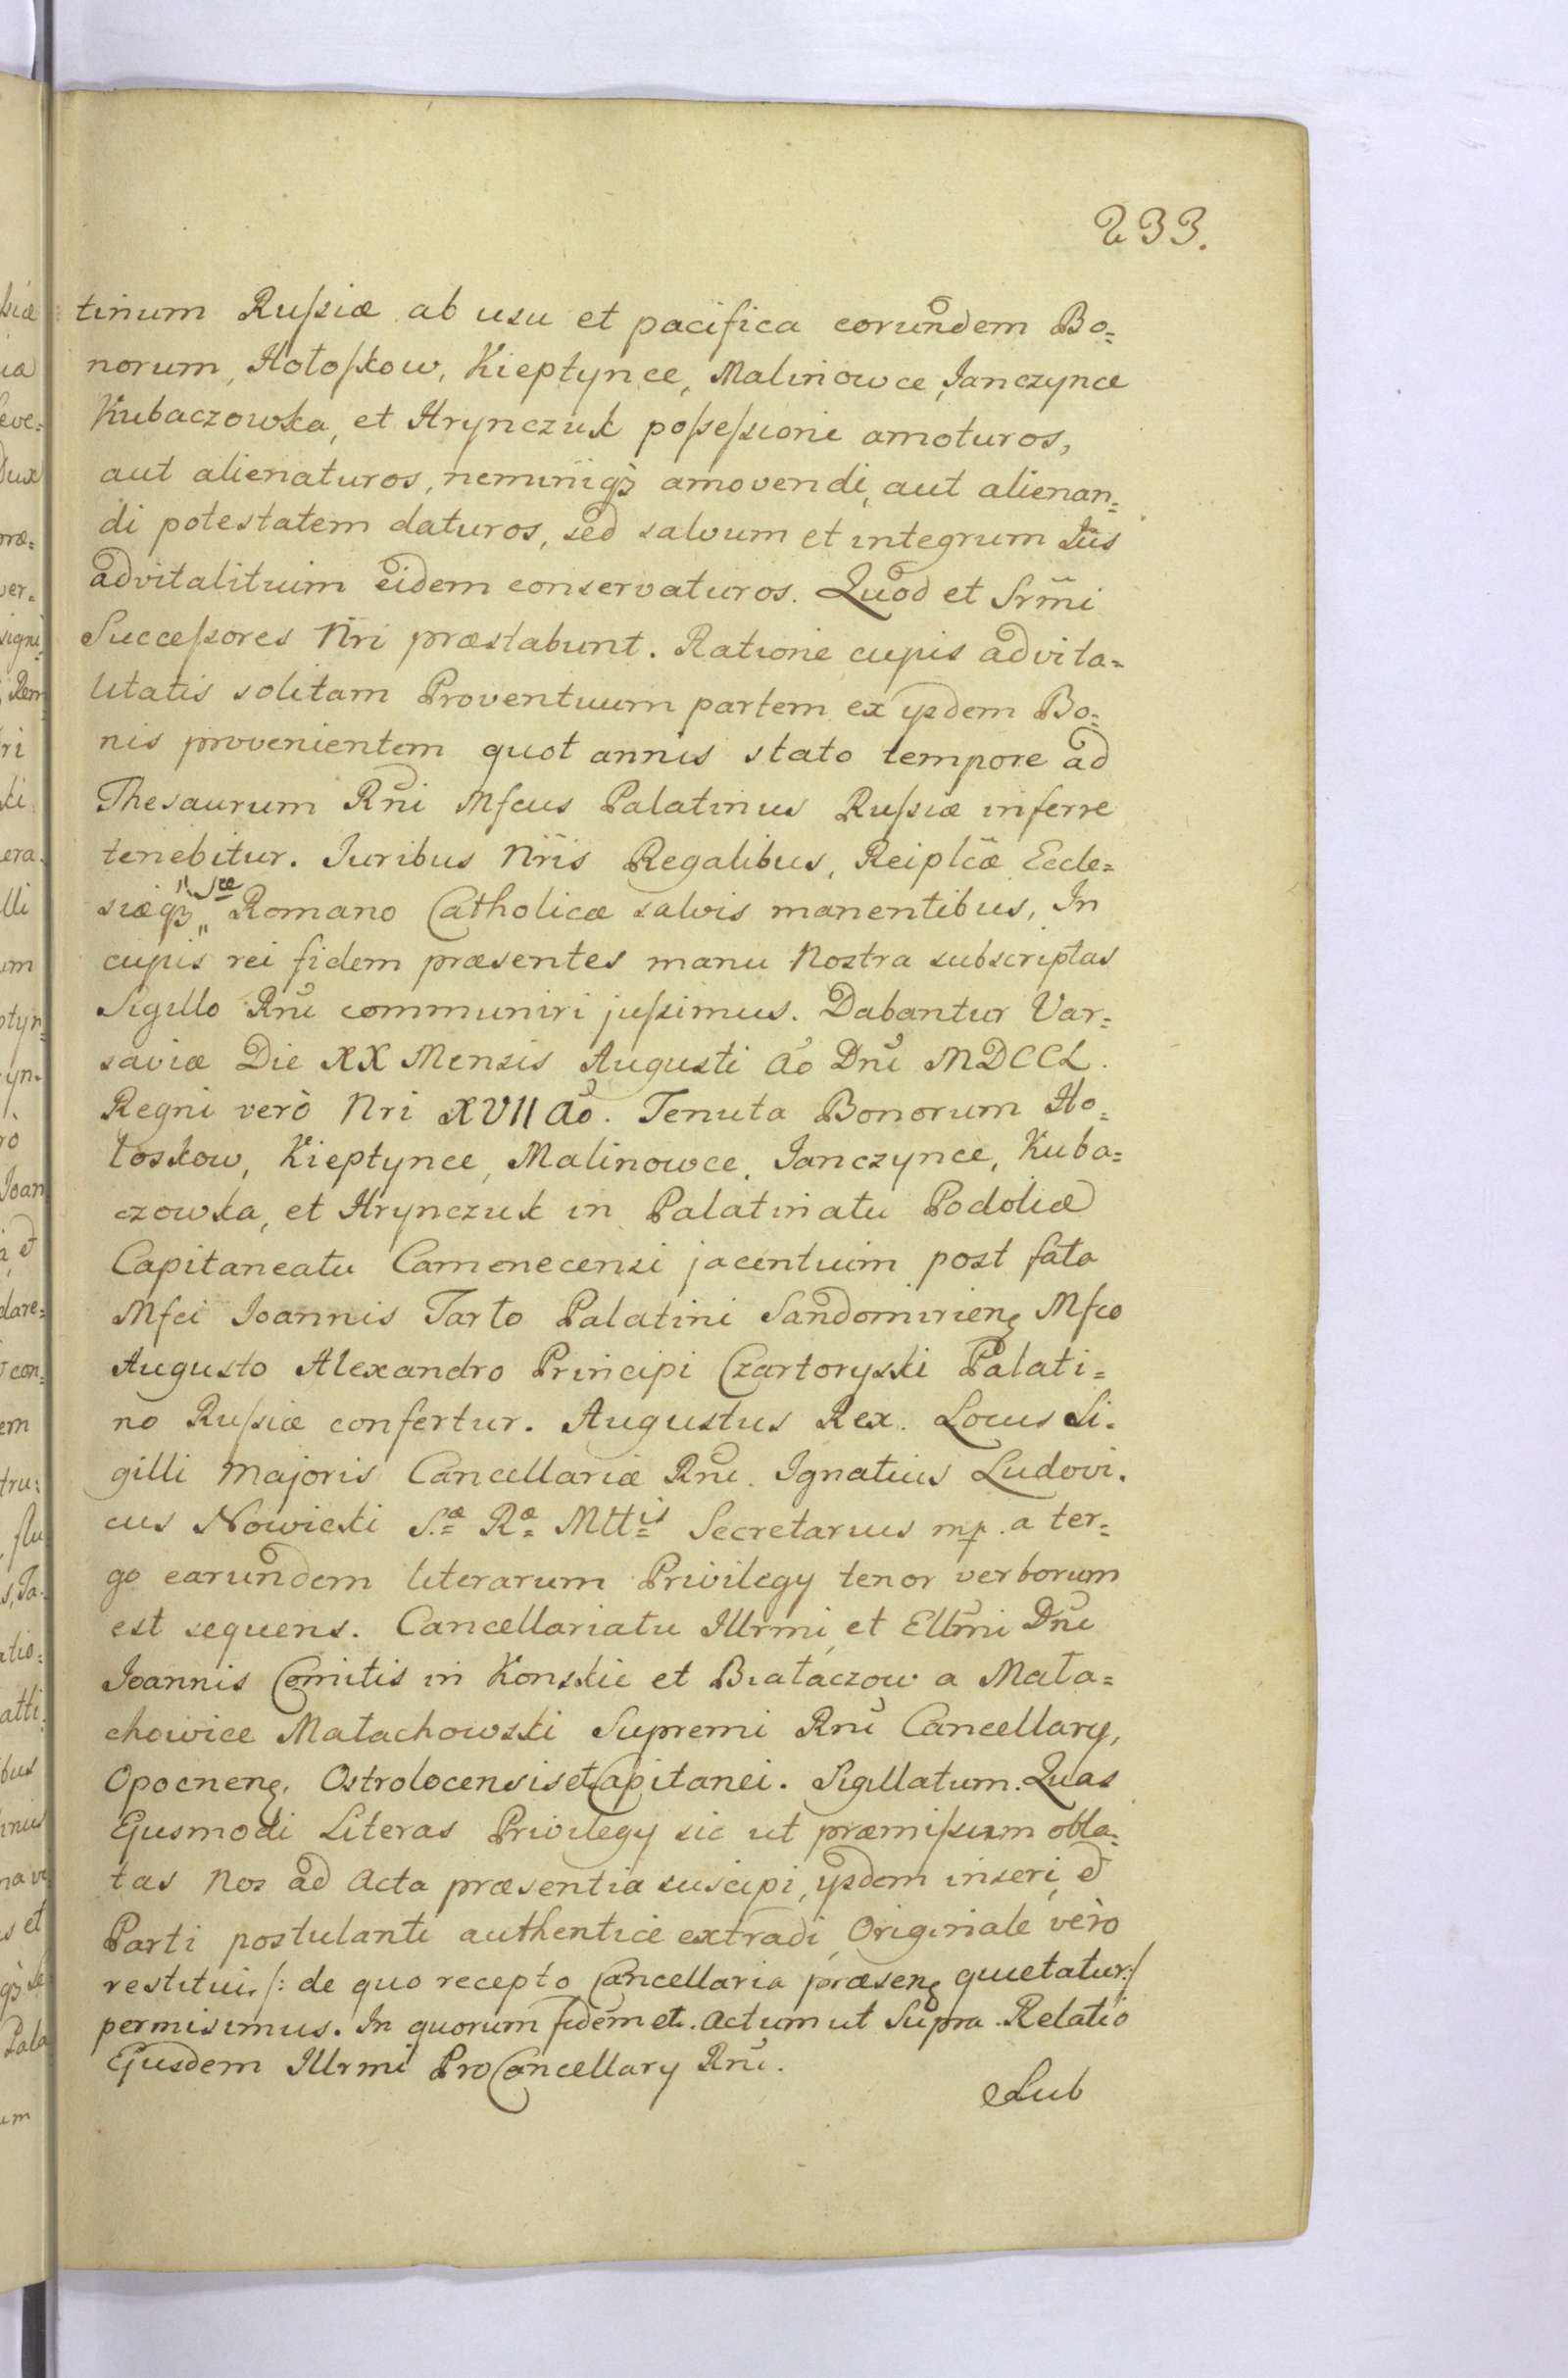 233.
tinum Russiæ ab usu et pacifica eorundem Bo=
norum, Hołoskow, Kieptynce, Malinowce, Janczynce
Kubaczowka, et Hrynczuk possessione amoturos,
aut alienaturos, neminiq3 amovendi, aut alienan=
di potestatem daturos, sed salvum et integrum Jus
advitalitium eidem conservaturos. Quod et Srmi
Successores Nri præstabunt. Ratione cujus advita=
litatis solitam Proventuum partem ex ysdem Bo=
nis provenientem quot annis stato tempore ad
Thesaurum Rni Mfcus Palatinus Russiæ inferre
tenebitur. Juribus Nris Regalibus, Reiplcæ Eccle=
siæq3 Sæ Romano Catholicæ salvis manentibus, In
cujus rei fidem præsentes manu Nostra subscriptas
Sigillo Rni communiri jussimus. Dabantur Var=
saviæ Die XX Mensis Augusti Ao Dni MDCCL.
Regni verò Nri XVII Ao. Tenuta Bonorum Ho=
łoskow, Kieptynce, Malinowce, Janczynce, Kuba=
czowka, et Hrynczuk in Palatinatu Podoliæ
Capitaneatu Camenecensi jacentium post fata
Mfci Joannis Tarło Palatini Sandomirien3 Mfco
Augusto Alexandro Principi Czartoryski Palati=
no Russiæ confertur. Augustus Rex. Locus Si=
gilli Majoris Cancellariæ Rni. Ignatius Ludovi=
cus Nowicki S.æ Ræ Mttis Secretarius mp. a ter=
go earundem literarum Privilegy tenor verborum
est sequens. Cancellariatu Illrmi et Ellmi Dni
Joannis Comitis in Konskie et Białaczow a Mała=
chowice Małachowski Supremi Rni Cancellary,
Opocnen3, Ostrolocensis et Capitanei. Sigillatum. Quas
Ejusmodi Literas Privilegy sic ut præmissum obla=
tas Nos ad Acta præsentia suscipi, ysdem inseri, et
Parti postulanti authentice extradi, Originale verò
restitui, /: de quo recepto Cancellaria præsen3 quietatur :/
permisimus. In quorum fidem et. Actum ut Supra. Relatio
Ejusdem Illrmi ProCancellary Rni.
Sub